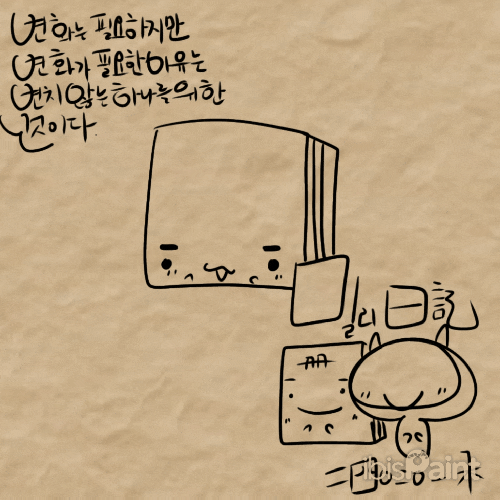 변화는 필요하지만
변화가 필요한 이유는
변치 않는 하나를 위한
것이다.
日記
ibisPaint